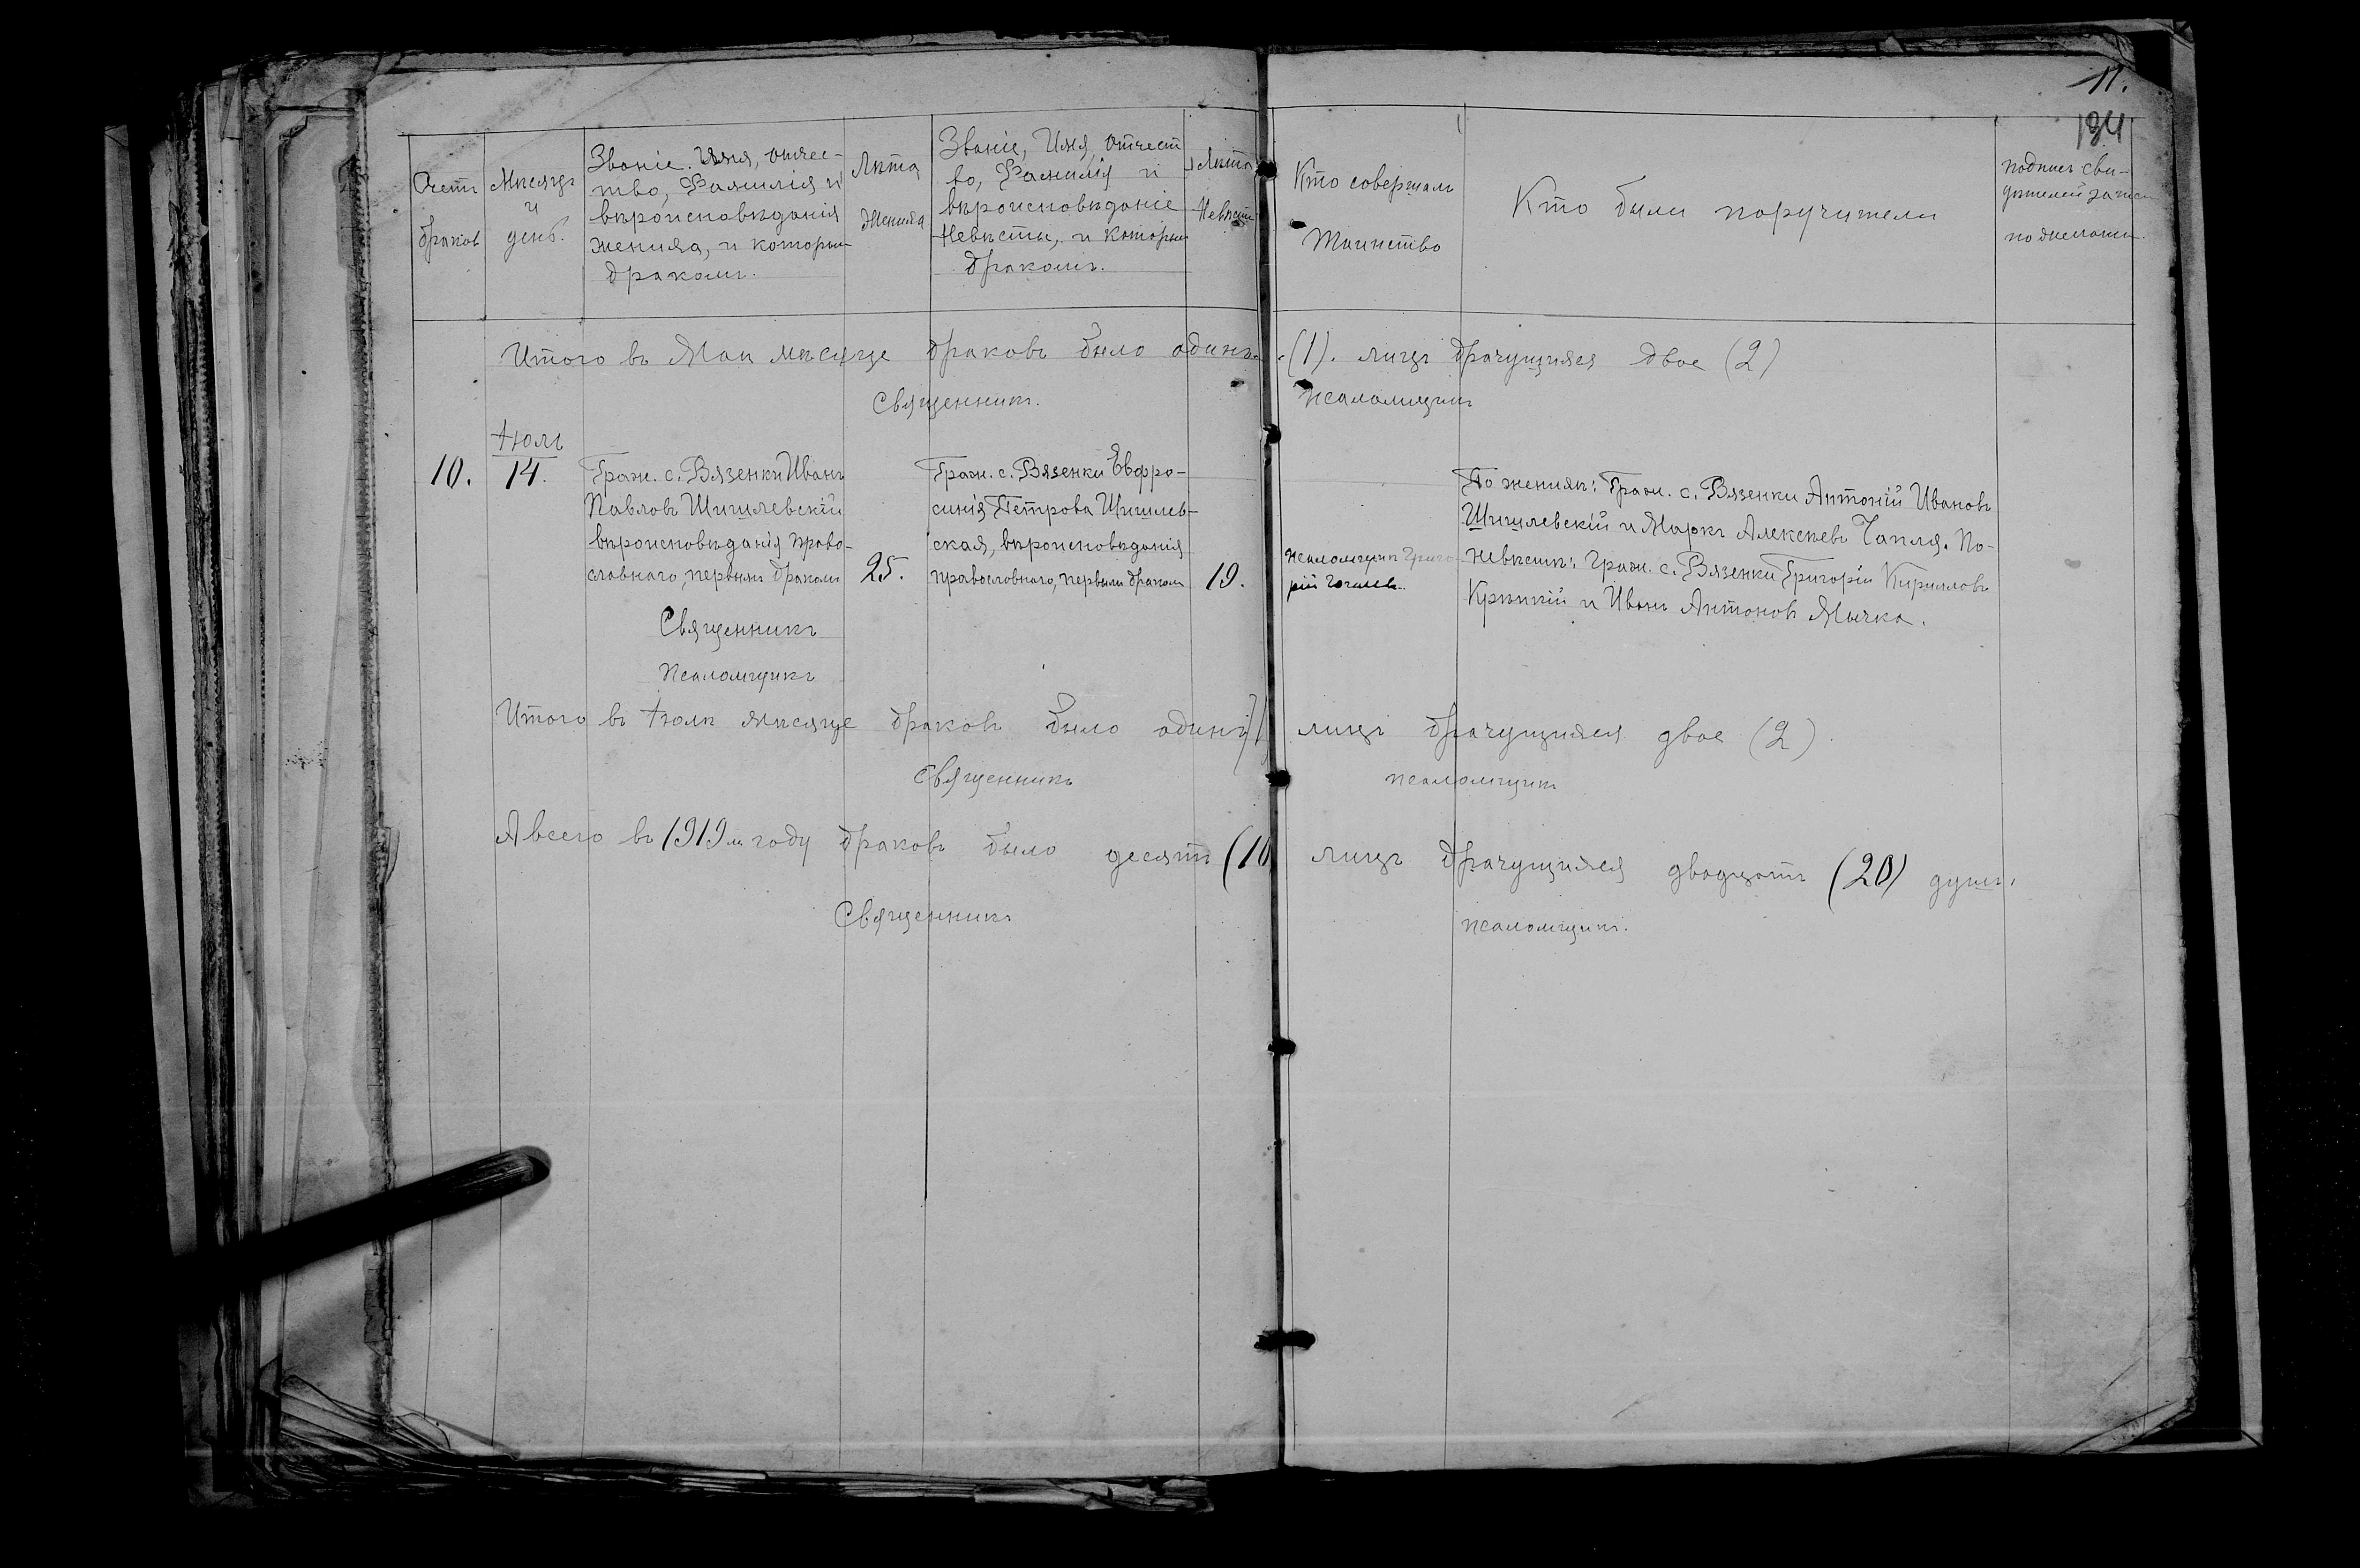 11.
134
Счетъ браковъ
Мѣсяцъ и день.
Званіе. Имя, отчес-
тво, Фамилія и
вѣроисповѣданія
жениха, и которым
бракомъ.
Лѣта
жениха
Званіе, Имя, отчест
во, Фамилія и
вѣроисповѣданіе
Невѣсты, и которым
бракомъ.
Лѣта
Невѣсты
Кто совершалъ
Таинство
Кто были поручители
подпись сви-
дѣтелей записи
по желанію
Итого въ Маи мѣсяце браковъ было одинъ (1). лицъ брачущихся двое (2)
Священникъ. Псаломщикъ
Іюль
10. 14.
Граж. с. Вязенки Иванъ
Павловъ Шишлевскій
вѣроисповѣданія право-
славнаго, первымъ бракомъ
25.
Граж. с. Вязенки Евфро-
синія Петрова Шишлев-
ская, вѣроисповѣданія
православнаго, первымъ бракомъ
19.
псаломщик Григо
рій
По женихѣ: Граж. с. Вязенки Антоній Ивановъ
Шишлевскій и Маркъ Алексѣевъ Чапля. По-
невѣстѣ: Граж. с. Вязенки Григорій Кирилловъ
Крѣпкій и Иванъ Антоновъ Мычка.
Священникъ
Псаломщикъ
Итого въ Іюлѣ мѣсяце браковъ было одинъ лицъ брачущихся двое (2).
Священникъ псаломщикъ
А всего въ 1919 м году браковъ было десять (10 лицъ брачущихся двадцать (20) душъ.
Священникъ псаломщикъ.